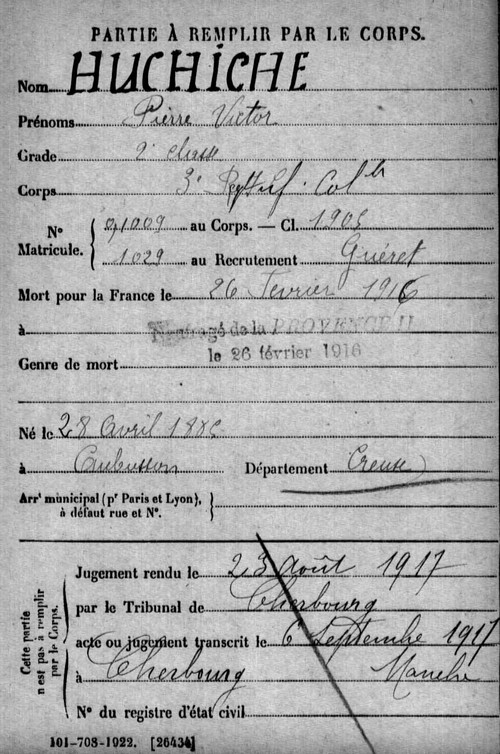 PARTIE À REMPLIR PAR LE CORPS.
Nom HUCHICHE
Prénoms Pierre Victor
Grade 2e classe
Corps 3e Regt Inf. Colle
Nos Matricule. { 0,1009 au Corps. — Cl. 1905
1029 au Recrutement Guéret
Mort pour la France le 26 Fevrier 1916
à Naufragé de la PROVENCE II
le 26 février 1916
Genre de mort
Né le 28 Avril 1885
à Aubusson Département Creuse
Arrt municipal (pr Paris et Lyon),
à défaut rue et No.
Cette partie n'est pas à remplir par le Corps.
Jugement rendu le 23 Août 1917
par le Tribunal de Cherbourg
acte ou jugement transcrit le 6 Septembre 1917
à Cherbourg Manche
No du registre d'état civil
101-708-1922. [26434]